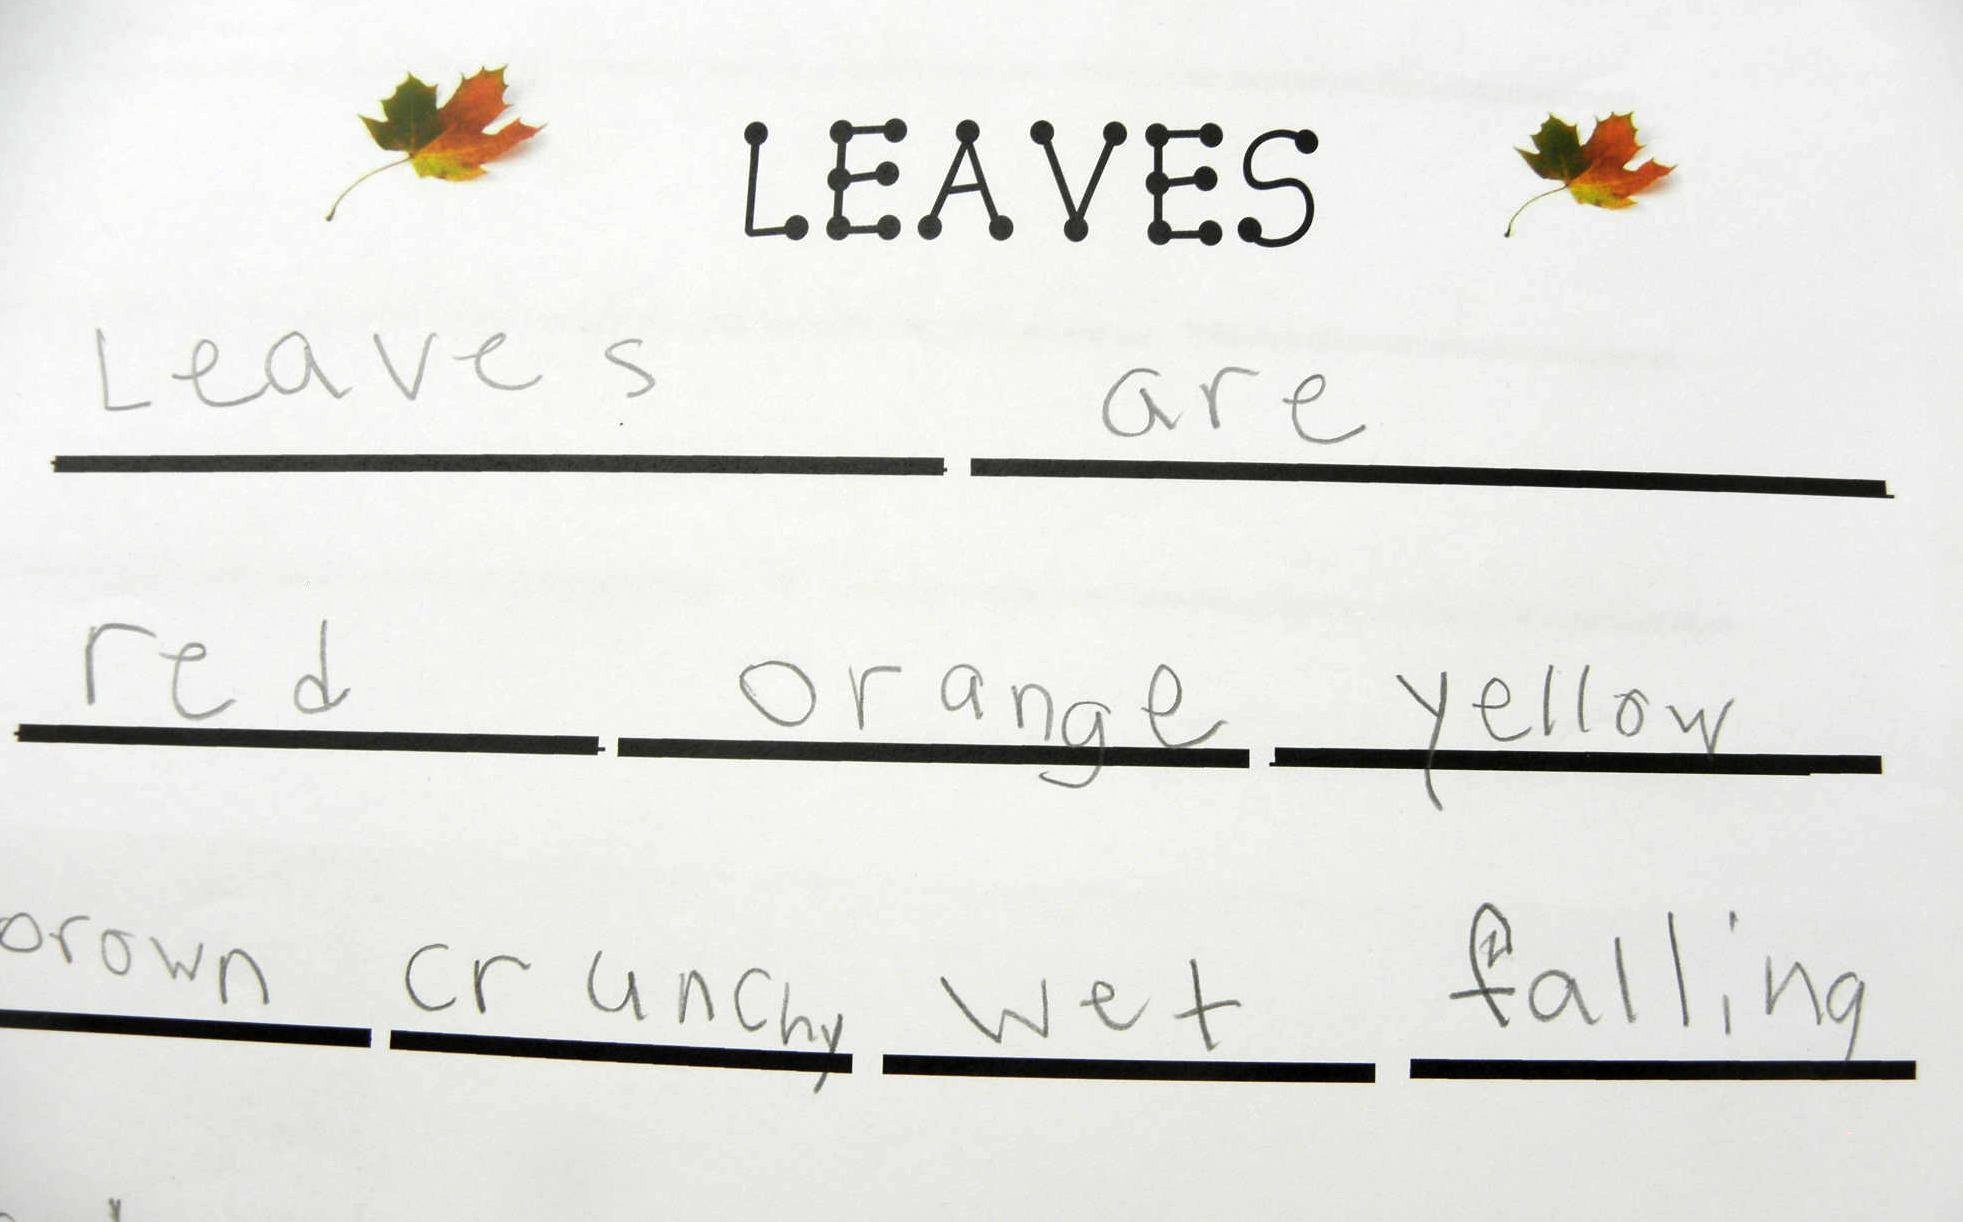 LEAVES
Leaves are
red orange yellow
brown crunchy wet falling